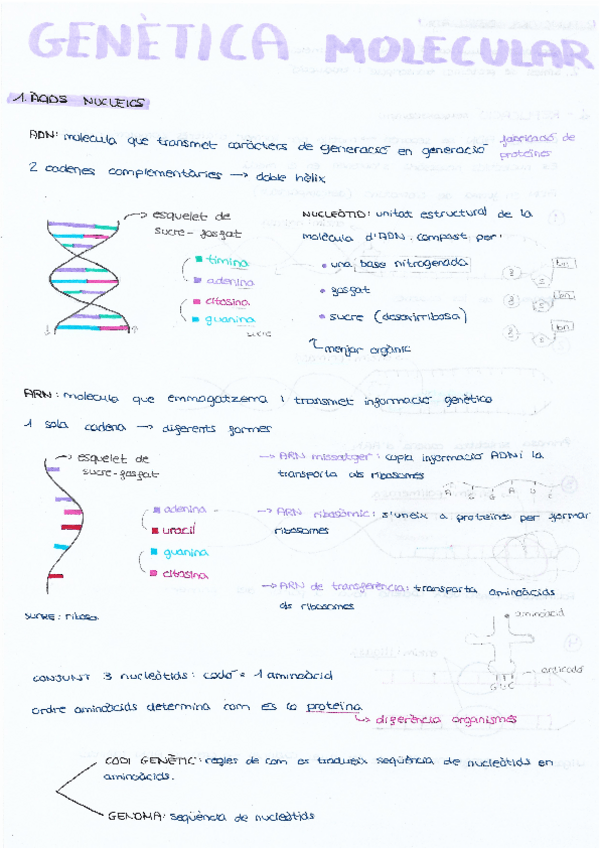 GENÈTICA MOLECULAR
1. ÀCIDS NUCLEICS
ADN: molècula que transmet caràcters de generació en generació fabricació de proteïnes
2 cadenes complementàries → doble hèlix
esquelet de
sucre-fosfat
timina
adenina
citosina
guanina
NUCLEÒTID: unitat estructural de la
molècula d'ADN. compost per:
• una base nitrogenada
• fosfat
• sucre (desoxirribosa)
menjar orgànic
ARN: molècula que emmagatzema i transmet informació genètica
1 sola cadena → diferents formes
esquelet de
sucre-fosfat
adenina
uracil
guanina
citosina
SUCRE: ribosa
→ ARN missatger: copia informació ADN i la
transporta als ribosomes
→ ARN ribosòmic: s'uneix a proteïnes per formar
ribosomes
→ ARN de transferència: transporta aminoàcids
als ribosomes
aminoàcid
anticodó
GUC
CONJUNT 3 nucleòtids: codó = 1 aminoàcid
ordre aminoàcids determina com és la proteïna
↳ diferència organismes
CODI GENÈTIC: regles de com es tradueix seqüència de nucleòtids en
aminoàcids.
GENOMA: seqüència de nucleòtids